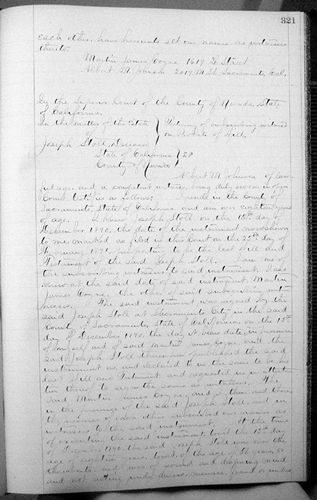 321
each other, have hereunto set our names as witnesses
thereto.
Martin James Coyne 1617 Street
Albert M. Johnson 2017 M St Sacramento, Cal.
In the Superior Court of the County of Nevada, State
of California.
In the Matter of the Estate
of
Joseph Stoll Deceased
Testimony of subscribing witness
on Probate of Will
State of California
County of Nevada
ss
Albert M Johnson of law-
ful age and a competent witness, being duly sworn in open
Court testifies as follows: I reside in the County of
Sacramento, State of California and am over eighteen years
of age. I knew Joseph Stoll on the 15th day of
December 1890, the date of the instrument now shown
to me marked as filed in this Court on the 25th day of
as the last Will and
Testament of the said Joseph Stoll. I am one of
the subscribing witnesses to said instrument. I also
knew at the said date of said instrument Martin
James Coyne, the other subscribing
witness. The said instrument was signed by the
said Joseph Stoll at Sacramento City in the said
County of Sacramento, State of California on the 15th
day of December 1890 the day it bears date in presence
of myself and of said Martin James Coyne and the
said Joseph Stoll thereupon published the said
instrument as and declared to us the same to be his
last Will and Testament and requested us in attesta-
tion thereof to sign the same as witnesses. The
said Martin James Coyne and I then and there
in the presence of the said Joseph Stoll and in
the presence of each other subscribed our names as
witnesses to the said instrument. At the time
of executing the said instrument to wit the 15th day
of December 1890 the said Joseph Stoll was over the
age of eighteen years to wit of the age of 56 years or
thereabouts and was of sound and disposing mind
and not acting under duress, menace, fraud or undue